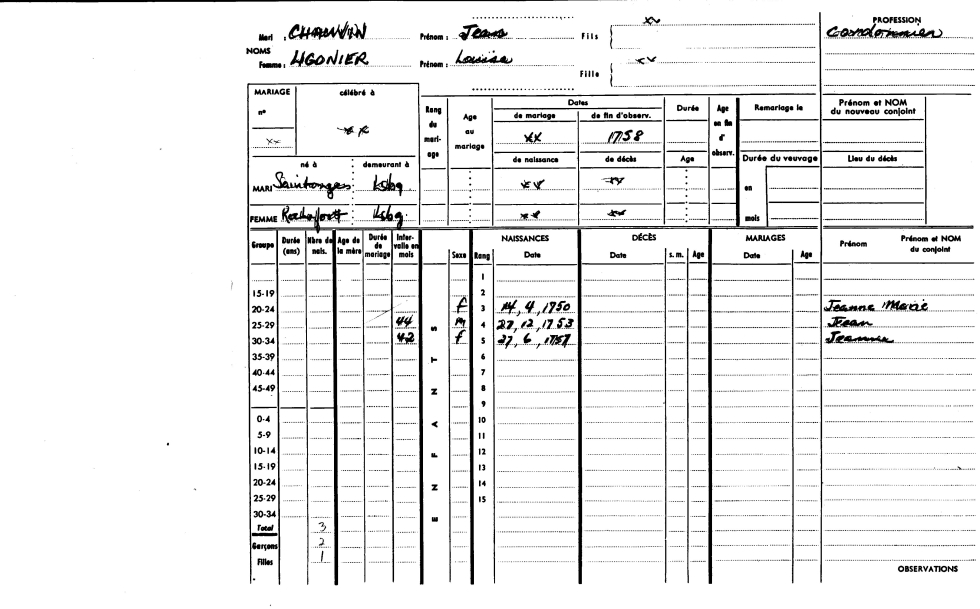 xx PROFESSION
Mari : CHAUVIN Prénom : Jean Fils Cordonnier
NOMS
Femme : LIGONIER Prénom : Louise xx
Fille
MARIAGE célébré à Rang du mari-age Age au mariage Dates Durée Age en fin d' observ. Remariage le Prénom et NOM du nouveau conjoint
nº de mariage de fin d'observ.
xx xx xx 1758
né à demeurant à de naissance de décès Age Durée du veuvage Lieu du décès
MARI Saintonges Lsbg xx xx en
FEMME Rochefort Lsbg. xx xx mois
Groupe Durée (ans) Nbre de nais. Age de la mère Durée de mariage Inter-valle en mois Sexe Rang NAISSANCES Date DÉCÈS Date s. m. Age MARIAGES Date Age Prénom Prénom et NOM du conjoint
1
15-19 2
20-24 f 3 14, 4, 1750 Jeanne Marie
25-29 44 M 4 27, 12, 1753 Jean
30-34 42 f 5 27, 6, 1757
35-39 6
40-44 7
45-49 8
9
0-4 10
5-9 11
10-14 12
15-19 13
20-24 14
25-29 15
30-34
ENFANTS
Total 3
Garçons 2
Filles 1
OBSERVATIONS